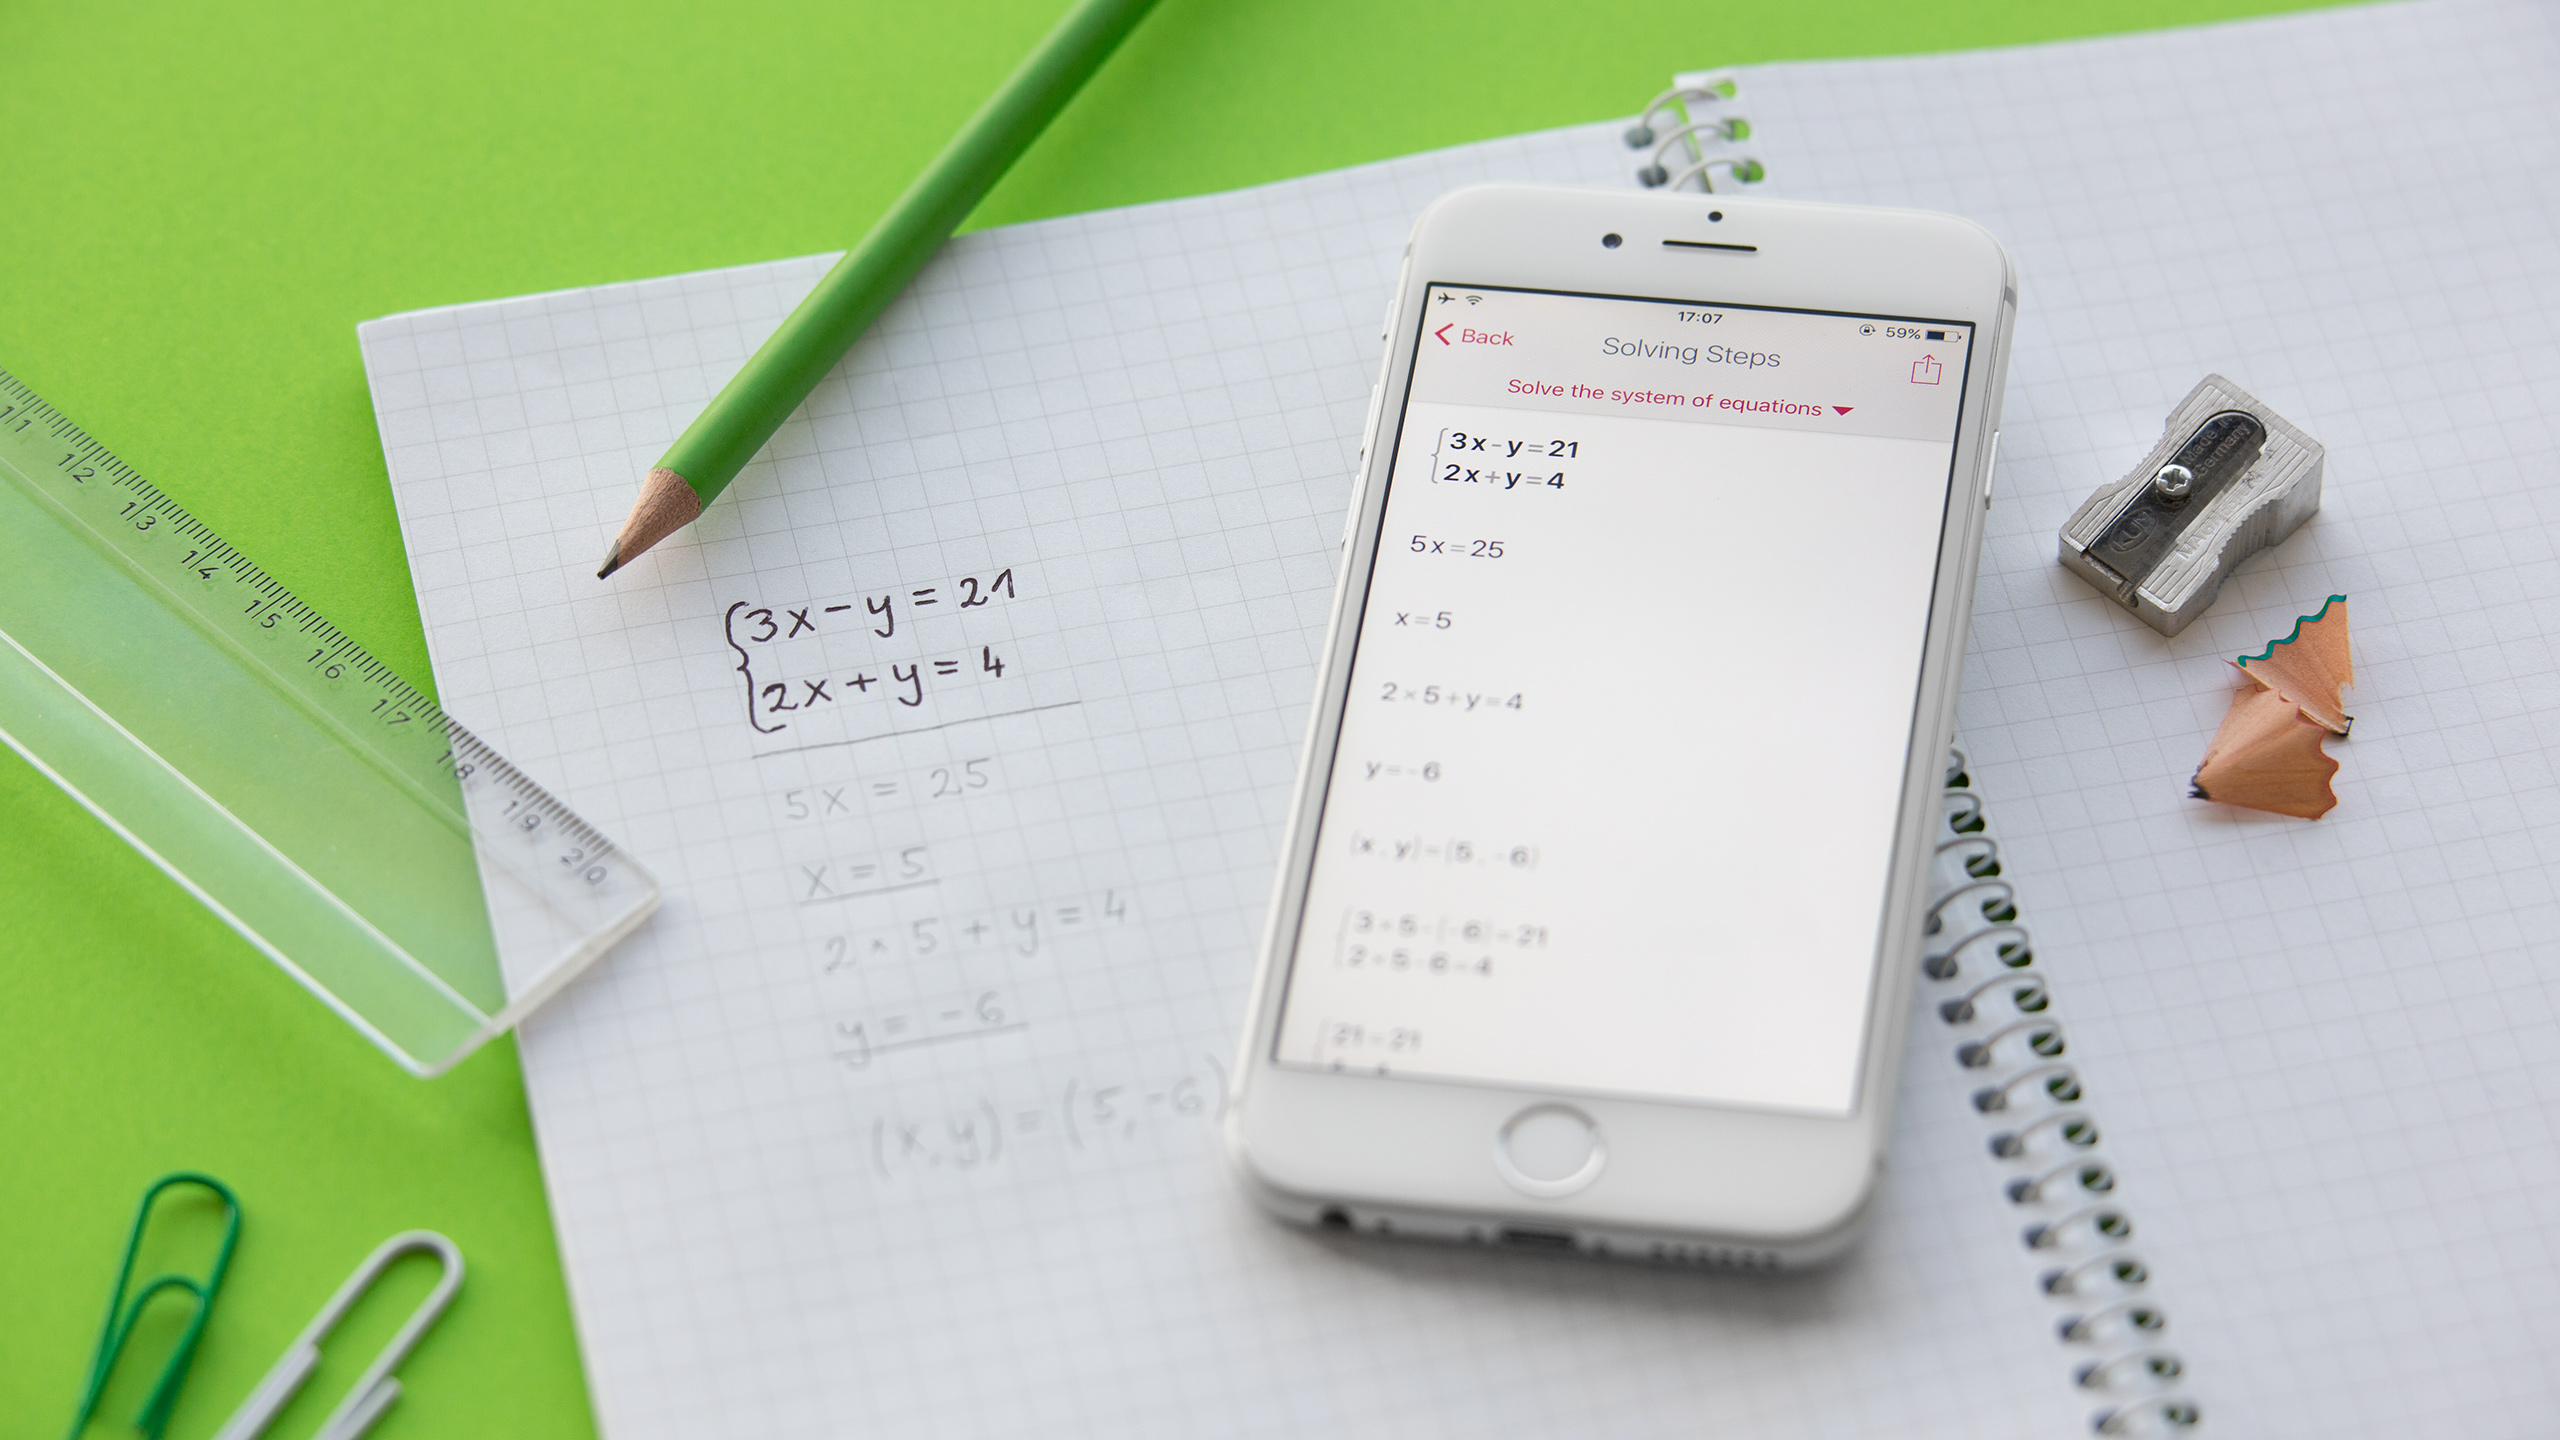 11
12
13
14
15
16
17
18
19
20
{3x-y=21
2x+y=4
5x=25
x=5
2×5+y=4
y=-6
(x,y)=(5,-6)
17:07
59%
Back
Solving Steps
Solve the system of equations
{3x-y=21
2x+y=4
5x=25
x=5
2×5+y=4
y=-6
(x,y)=(5,-6)
21=21
Made in
Germany
KUM